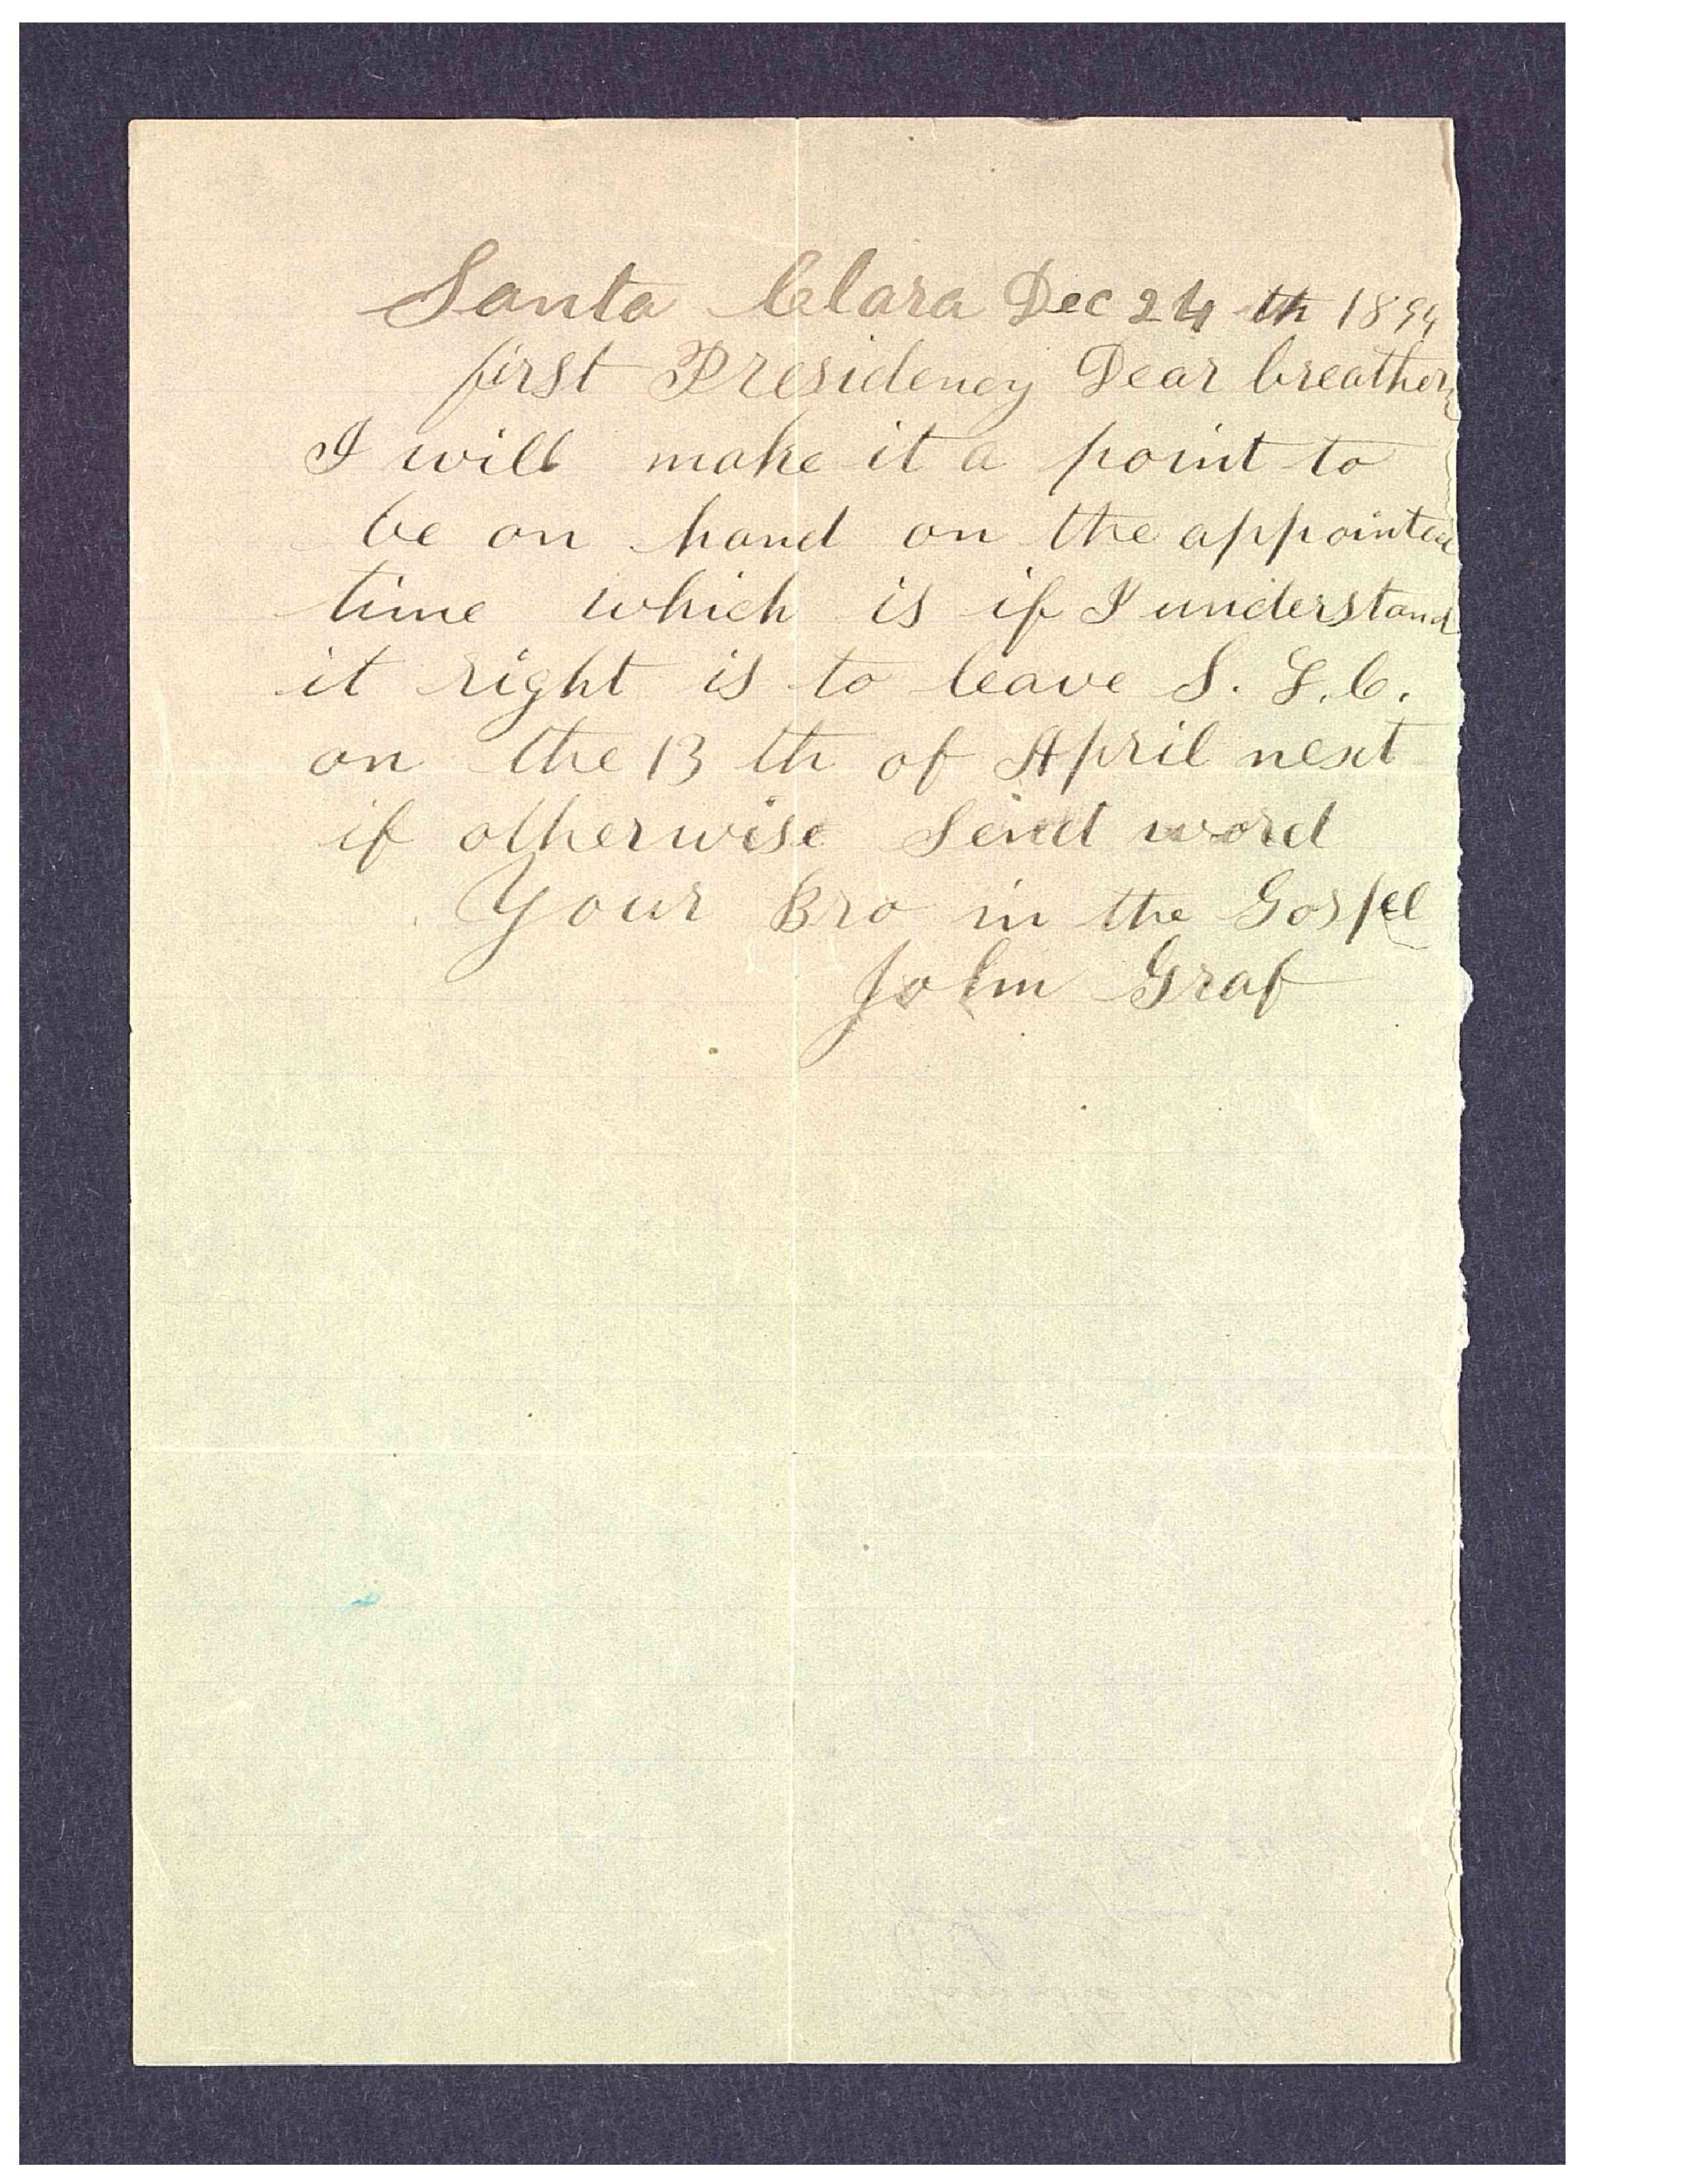 Santa Clara Dec 24 th 1894
first Presidency Dear breathern
I will make it a point to
be on hand on the appointed
time which is if I understand
it right is to leave S. L. C.
on the 13 th of April next
if otherwise Send word
Your Bro in the Gospel
John Graf